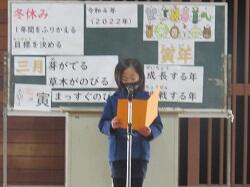 冬休み
1年間をふりかえる
目標を決める
令和4年
(2022年)
三月
芽がでる
草木がのびる
寅
まっすぐのび
成長する年
戦する年